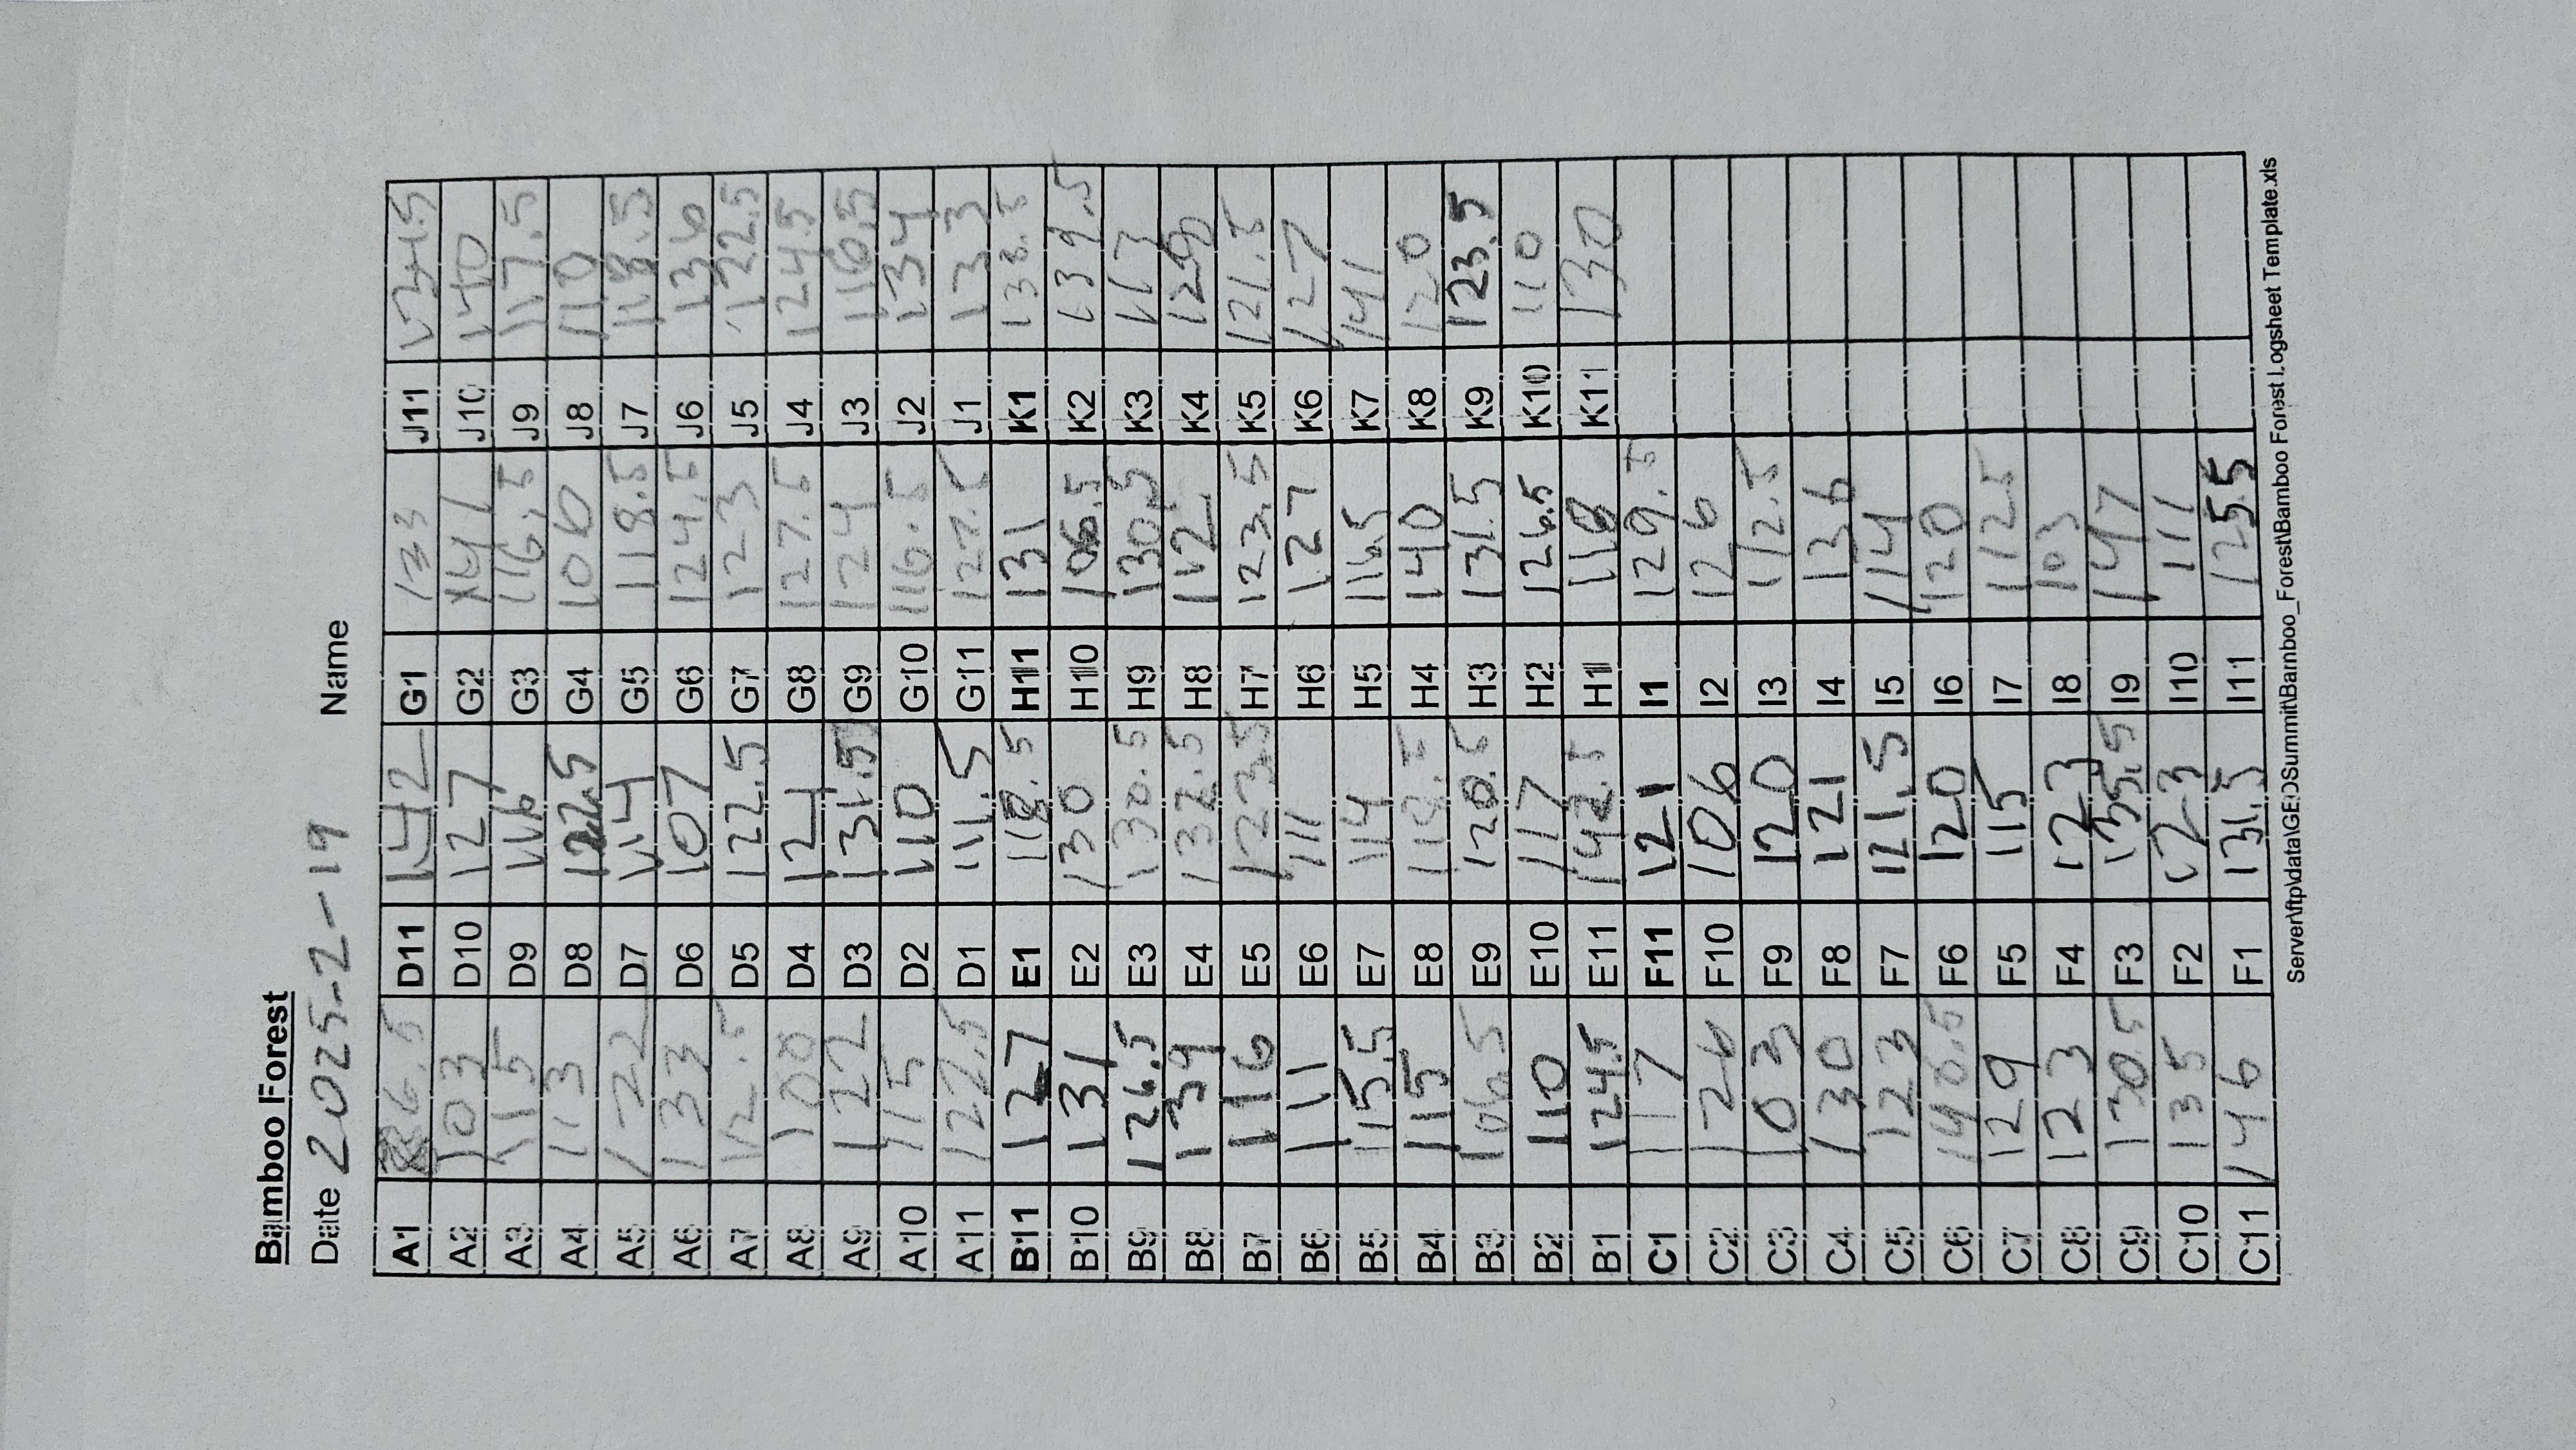 Bamboo Forest
Date 2025-2-19 Name
A1 86.5 D11 142 G1 133 J11 134.5
A2 103 D10 127 G2 141 J10 140
A3 115 D9 116 G3 116.5 J9 117.5
A4 113 D8 122.5 G4 106 J8 110
A5 122 D7 114 G5 118.5 J7 118.5
A6 133 D6 107 G6 124.5 J6 136
A7 12.5 D5 122.5 G7 123 J5 122.5
A8 100 D4 124 G8 127.5 J4 124.5
A9 122 D3 131.5 G9 124 J3 116.5
A10 115 D2 110 G10 116.5 J2 134
A11 122.5 D1 111.5 G11 127.5 J1 133
B11 127 E1 118.5 H11 131 K1 138.5
B10 131 E2 130 H10 106.5 K2 139.5
B9 126.5 E3 130.5 H9 130.5 K3 117
B8 139 E4 132.5 H8 112 K4 129
B7 116 E5 123.5 H7 123.5 K5 121.5
B6 111 E6 111 H6 127 K6 127
B5 115.5 E7 114 H5 116.5 K7 141
B4 115 E8 119.5 H4 140 K8 120
B3 106.5 E9 120.5 H3 131.5 K9 123.5
B2 110 E10 117 H2 126.5 K10 110
B1 124.5 E11 142.5 H1 118 K11 130
C1 117 F11 121 I1 129.5
C2 126 F10 106 I2 126
C3 103 F9 120 I3 112.5
C4 130 F8 121 I4 136
C5 123 F7 121.5 I5 114
C6 140.5 F6 120 I6 120
C7 129 F5 115 I7 112.5
C8 123 F4 123 I8 103
C9 130.5 F3 135.5 I9 147
C10 135 F2 123 I10 111
C11 146 F1 131.5 I11 125.5
Server\ftp\data\GEOSummit\Bamboo_Forest\Bamboo Forest Logsheet Template.xls